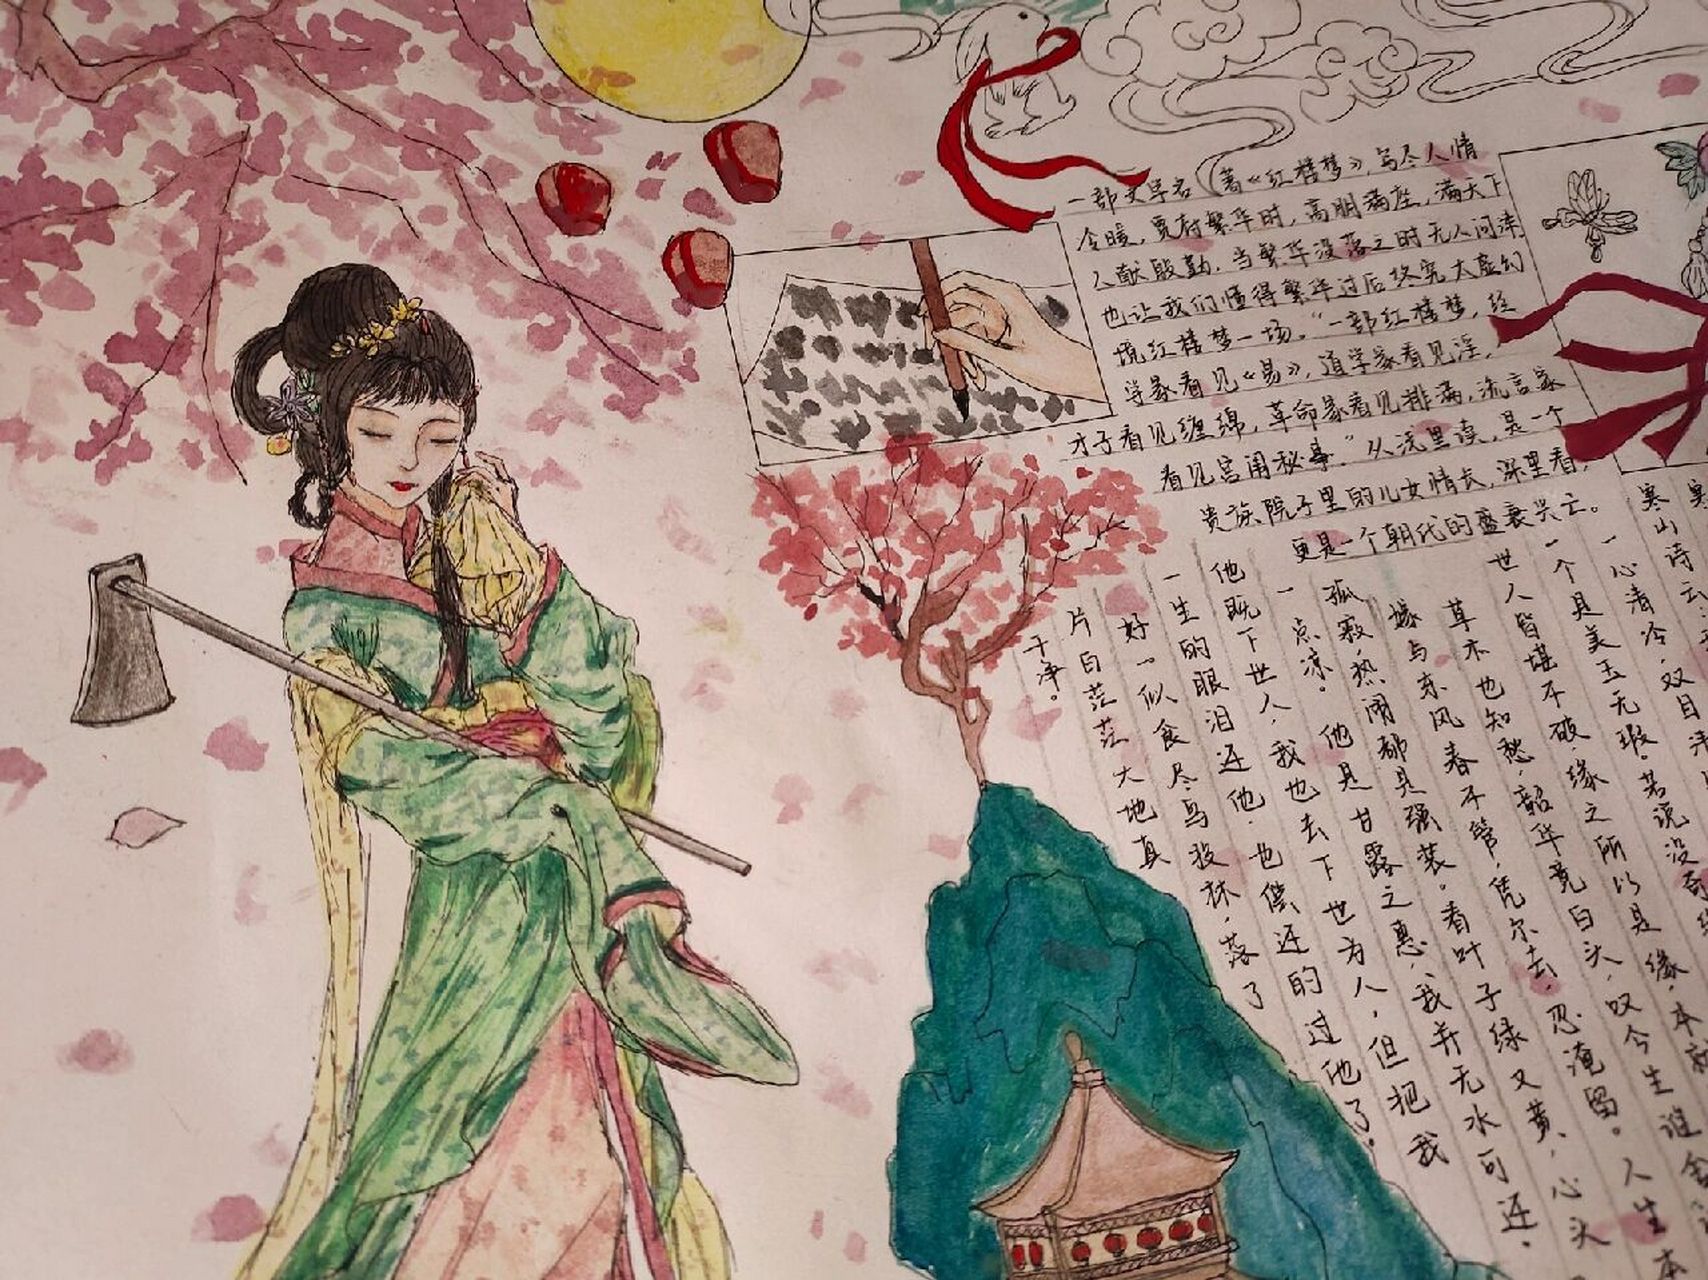 一部文学名著《红楼梦》,写尽人情
冷暖,贾府繁华时,高朋满座,满天下
人献殷勤,当繁华没落之时无人问津
也让我们懂得繁华过后终究太虚幻
境红楼梦一场。"一部红楼梦,经
学家看见《易》,道学家看见淫,
才子看见缠绵,革命家看见排满,流言家
看见宫闱秘事"从浅里读,是一个
贵族院子里的儿女情长,深里看,
更是一个朝代的盛衰兴亡。
寒山诗云
一心清冷,双目清
一个是美玉无瑕。若说没奇
世人皆堪不破,缘之所以是缘,本就
草木也知愁,韶华竟白头,叹今生谁舍
嫁与东风春不管,凭尔去,忍淹留。人生本
孤寂,热闹都是强装。看叶子绿又黄,心头
一点凉。他是甘露之惠,我并无水可还,
他既下世人,我也去下世为人,但把我
一生的眼泪还他,也偿还的过他了。
好一似食尽鸟投林,落了
片白茫茫大地真
干净。